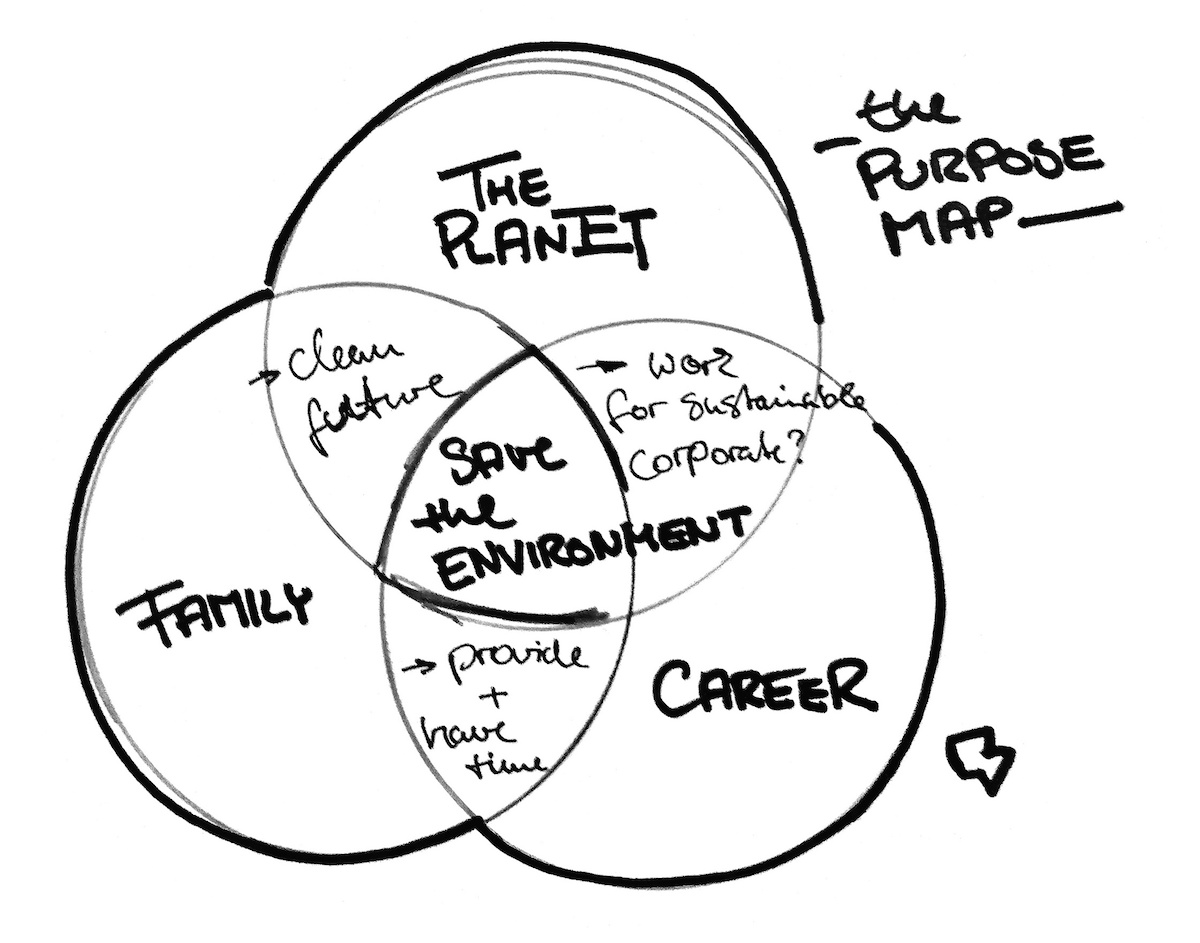 the
PURPOSE
MAP
THE
PLANET
→ clean
future
→ work
for sustainable
corporate?
SAVE
the
ENVIRONMENT
FAMILY
→ provide
+
have
time
CAREER